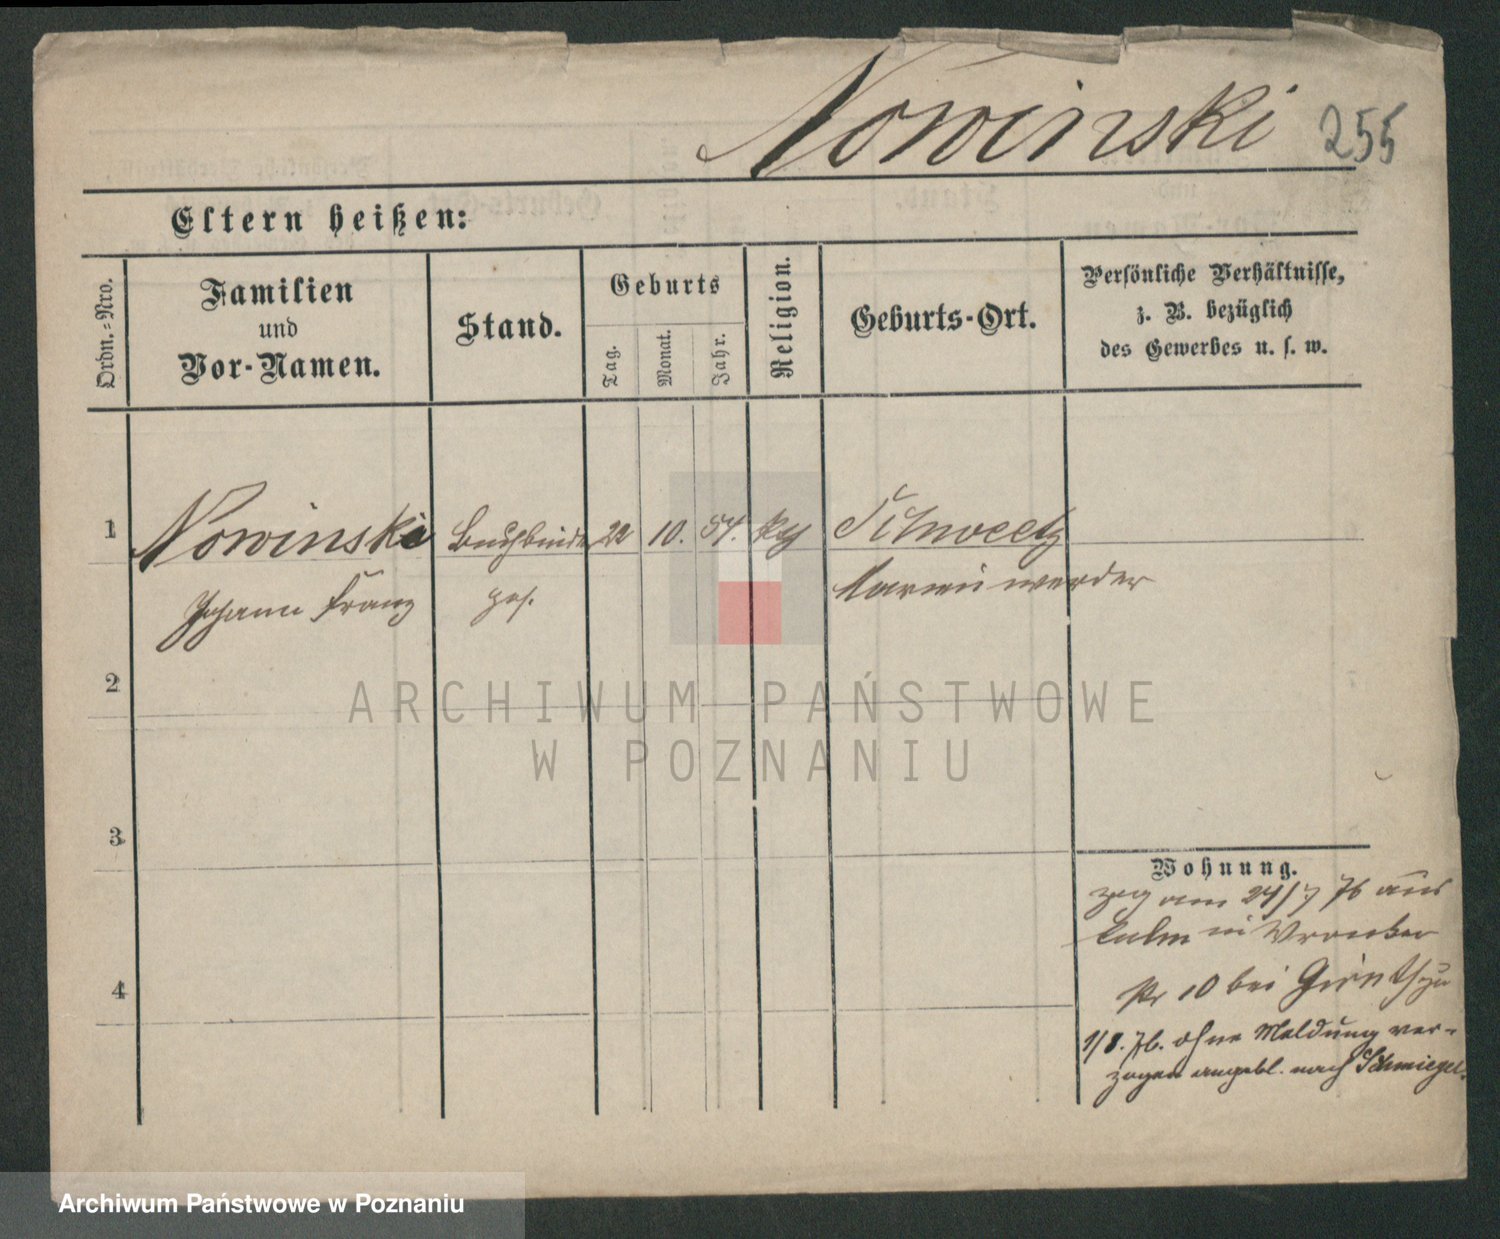 Nowinski 255
Eltern heißen:
Ordn.=Nro.
Familien
und
Vor-Namen.
Stand.
Geburts
Tag.
Monat.
Jahr.
Religion.
Geburts-Ort.
Persönliche Verhältnisse,
z. B. bezüglich
des Gewerbes u. s. w.
1 Nowinski Buchbinder 22 10. 54. kth Schwetz
Johann Franz ges. Marienwerder
2
3
4
Wohnung.
zog am 24/7 76 aus
Culm in Wronker
No 10 bei
1/8. 76. ohne Meldung ver-
zogen angebl. nach Schmiegel.
ARCHIWUM PAŃSTWOWE
W POZNANIU
Archiwum Państwowe w Poznaniu